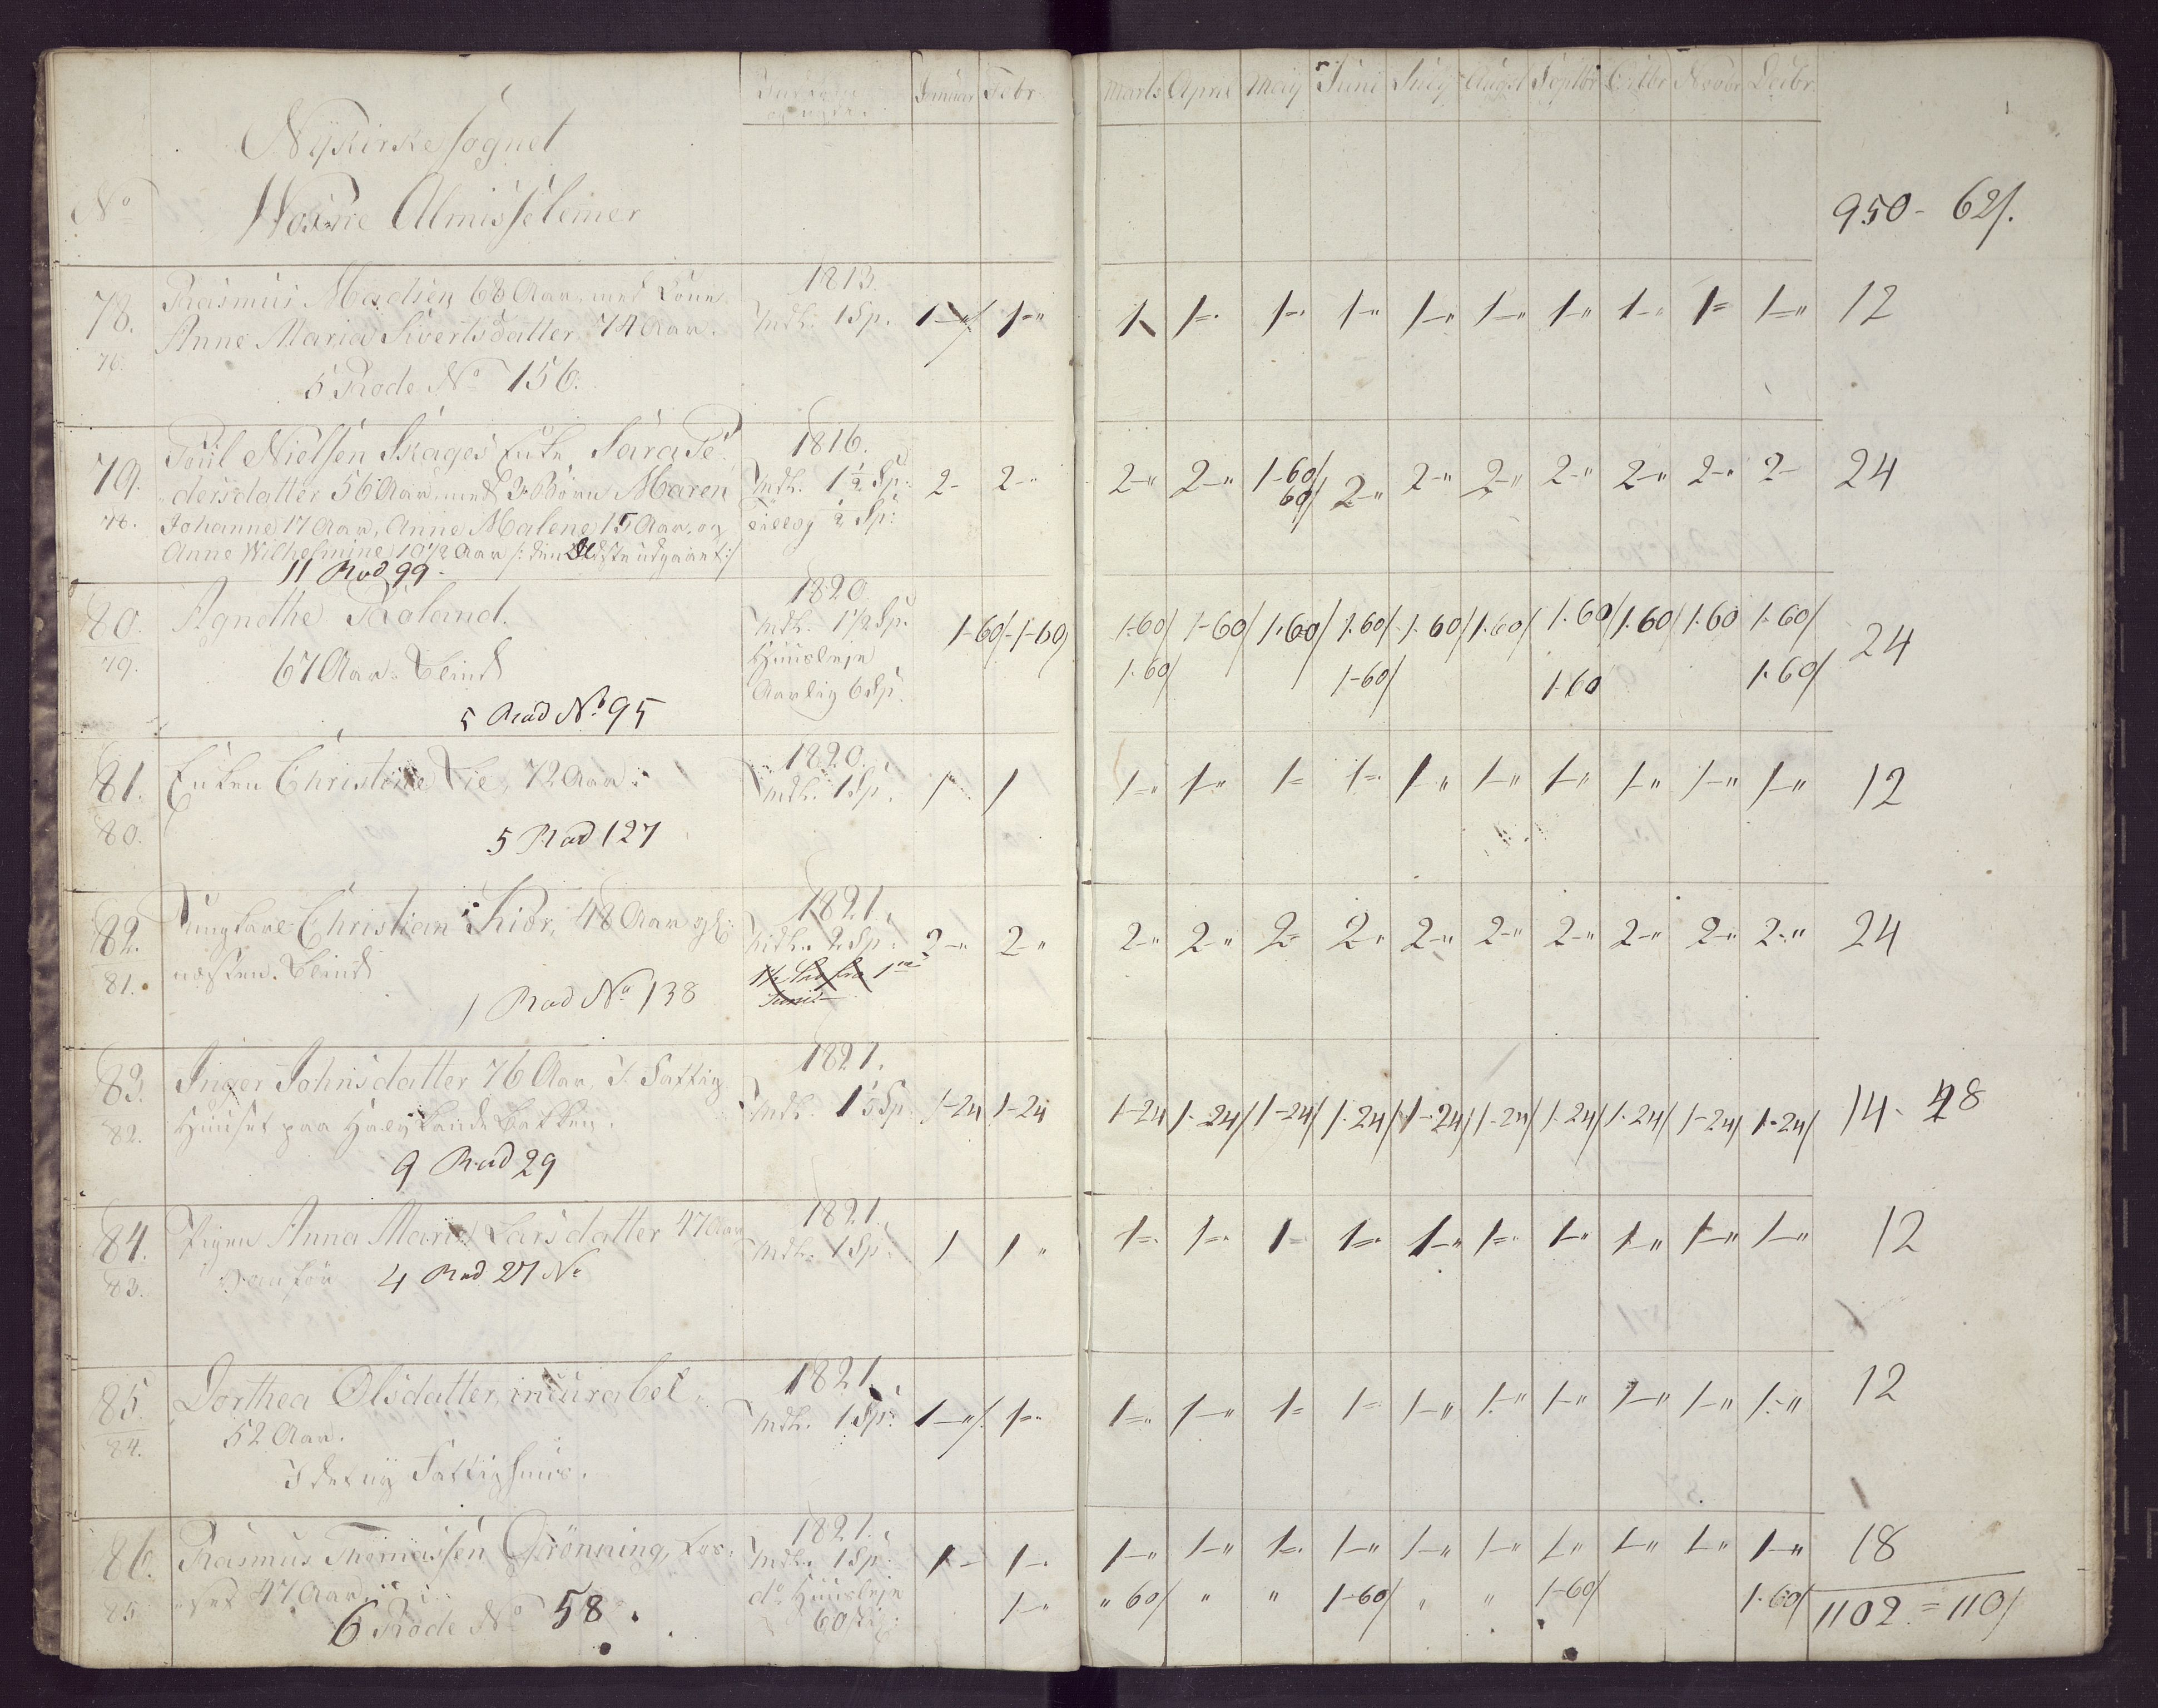 Nykirke Sognet
No Voxne Almisselemer
Januar Febr Marts April Maij Juni Julij Augst Septbr Octbr Novbr Decbr
950 - 62/.
78. Rasmus Madsen 68 Aar, med Kone 1813.
76. Anne Maria Sivertsdatter 74 Aar. Mdl. 1 Sp. 1-"/ 1-" 1 1-" 1-" 1-" 1-" 1-" 1-" 1-" 1= 1-" 12
5 Rode No 156.
Poul Nielsen Skages Enke, Sara Pe- 1816.
79. dersdatter 56 Aar, med 3 Børn Maren Mdl. 1½ Sp: 2- 2-" 2-" 2-" 1-60/ 2-" 2-" 2-" 2-" 2-" 2-" 2- 24
78. Johanne 17 Aar, Anne Malene 15 Aar, og Tillæg ½ Sp: 60/
Anne Wilhelmine 10 1/2 Aar /: den Ældste udgaaet :/
11 Rod 99-
80. Agnethe Roland. 1820
Mdl. 1 1/2 Sp. 1-60/ 1-60/ 1-60/ 1-60/ 1.60/ 1.60/ 1.60/ 1.60/ 1.60/ 1.60/ 1.60 1-60/ 24
79. 67 Aar. Blind Huusleje 1.60/ 1-60/ 1.60 1.60/
Aarlig 6 Sp.
5 Rod No 95
81. Enken Christine Lie, 72 Aar. 1820.
Mdl. 1 Sp. 1 1 1-" 1-" 1= 1-" 1-" 1-" 1-" 1-" 1-" 1-" 12
80. 5 Rod 127
82. Ungkarl Christian Kior, 48 Aar 1821.
næsten Blind Mdl. 2 Sp: 2-" 2-" 2-" 2-" 2- 2-" 2-" 2-" 2-" 2-" 2-" 2-" 24
81. 1 Rod No 138 Junii
83. Inger Johnsdatter 76 Aar, I Fattig 1821.
82. Huuset paa Hs Mdl. 1 Sp. 1-24 1-24 1-24 1-24/ 1-24/ 1.24/ 1-24/ 1-24/ 1.24/ 1.24/ 1-24/ 1-24/ 14-48
9 Rod 29
84. Pigen Anna Maria Larsdatter 47 Aar 1821.
Mdl. 1 Sp. 1 1" 1-" 1-" 1- 1-" 1-" 1-" 1-" 1-" 1-" 1-" 12
83. 4 Rod 27 No
85. Dorthea Olsdatter, incurabel. 1821.
84. 52 Aar. Mdl. 1 Sp: 1-"/. 1-" 1-" 1-" 1= 1-" 1-" 1-" 1-" 1-" 1-" 1-" 12
I det ny Fattighuus.
86. Rasmus Thomassen Grönning, 1821.
Mdl. 1 Sp: 1- 1-" 1-" 1-" 1-" 1-" 1-" 1-" 1-" 1-" 1-" 1-" 18
85 47 Aar do Huusleje 1-" "60/ " " 1-60/ " " 1-60/ 1.60/ 1102 = 110/
6 Rode No 58.